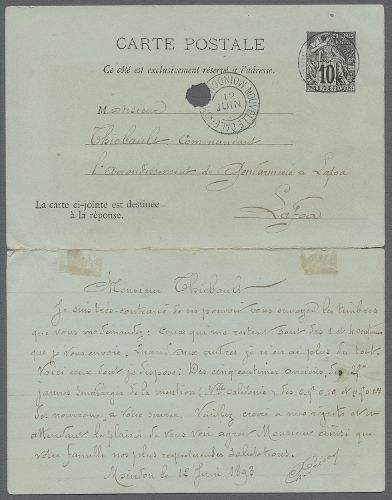 CARTE POSTALE
Ce côté est exclusivement réservé à l'adresse.
10
NOUVELLE CALÉ
MOINDOU
12
JUIN
Monsieur
Thiébault Commandant
l'arrondissement de Gendarmerie a Lafoa
La carte ci-jointe est destinée
à la réponse.
Lafoa
Monsieur Thiébault
Je suis très contrarié de ne pouvoir vous envoyer les timbres
que vous me demandez: Ceux qui me restent sont des 1 et 4 centimes
que je vous envoie: Quant aux autres je n'en ai plus du tout.
Voici ceux dont je dispose: Des cinq centimes anciens, des
jaunes surchargés de la mention (Nlle Calédonie) des
des nouveaux à votre service. Veuillez croire à mes regrets et en
attendant le plaisir de vous voir agréer Monsieur ainsi que
votre famille nos plus respectueuses salutations.
Moindou le 12 Juin 1893